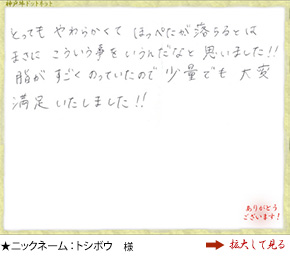 神戸牛ドットネット
とっても やわらかくて ほっぺたが落ちるとは
まさに こういう事をいうんだなと 思いました!!
脂が すごく のっていたので 少量でも 大変
満足 いたしました!!
ありがとう
ございます!
★ニックネーム:トシボウ 様
拡大して見る